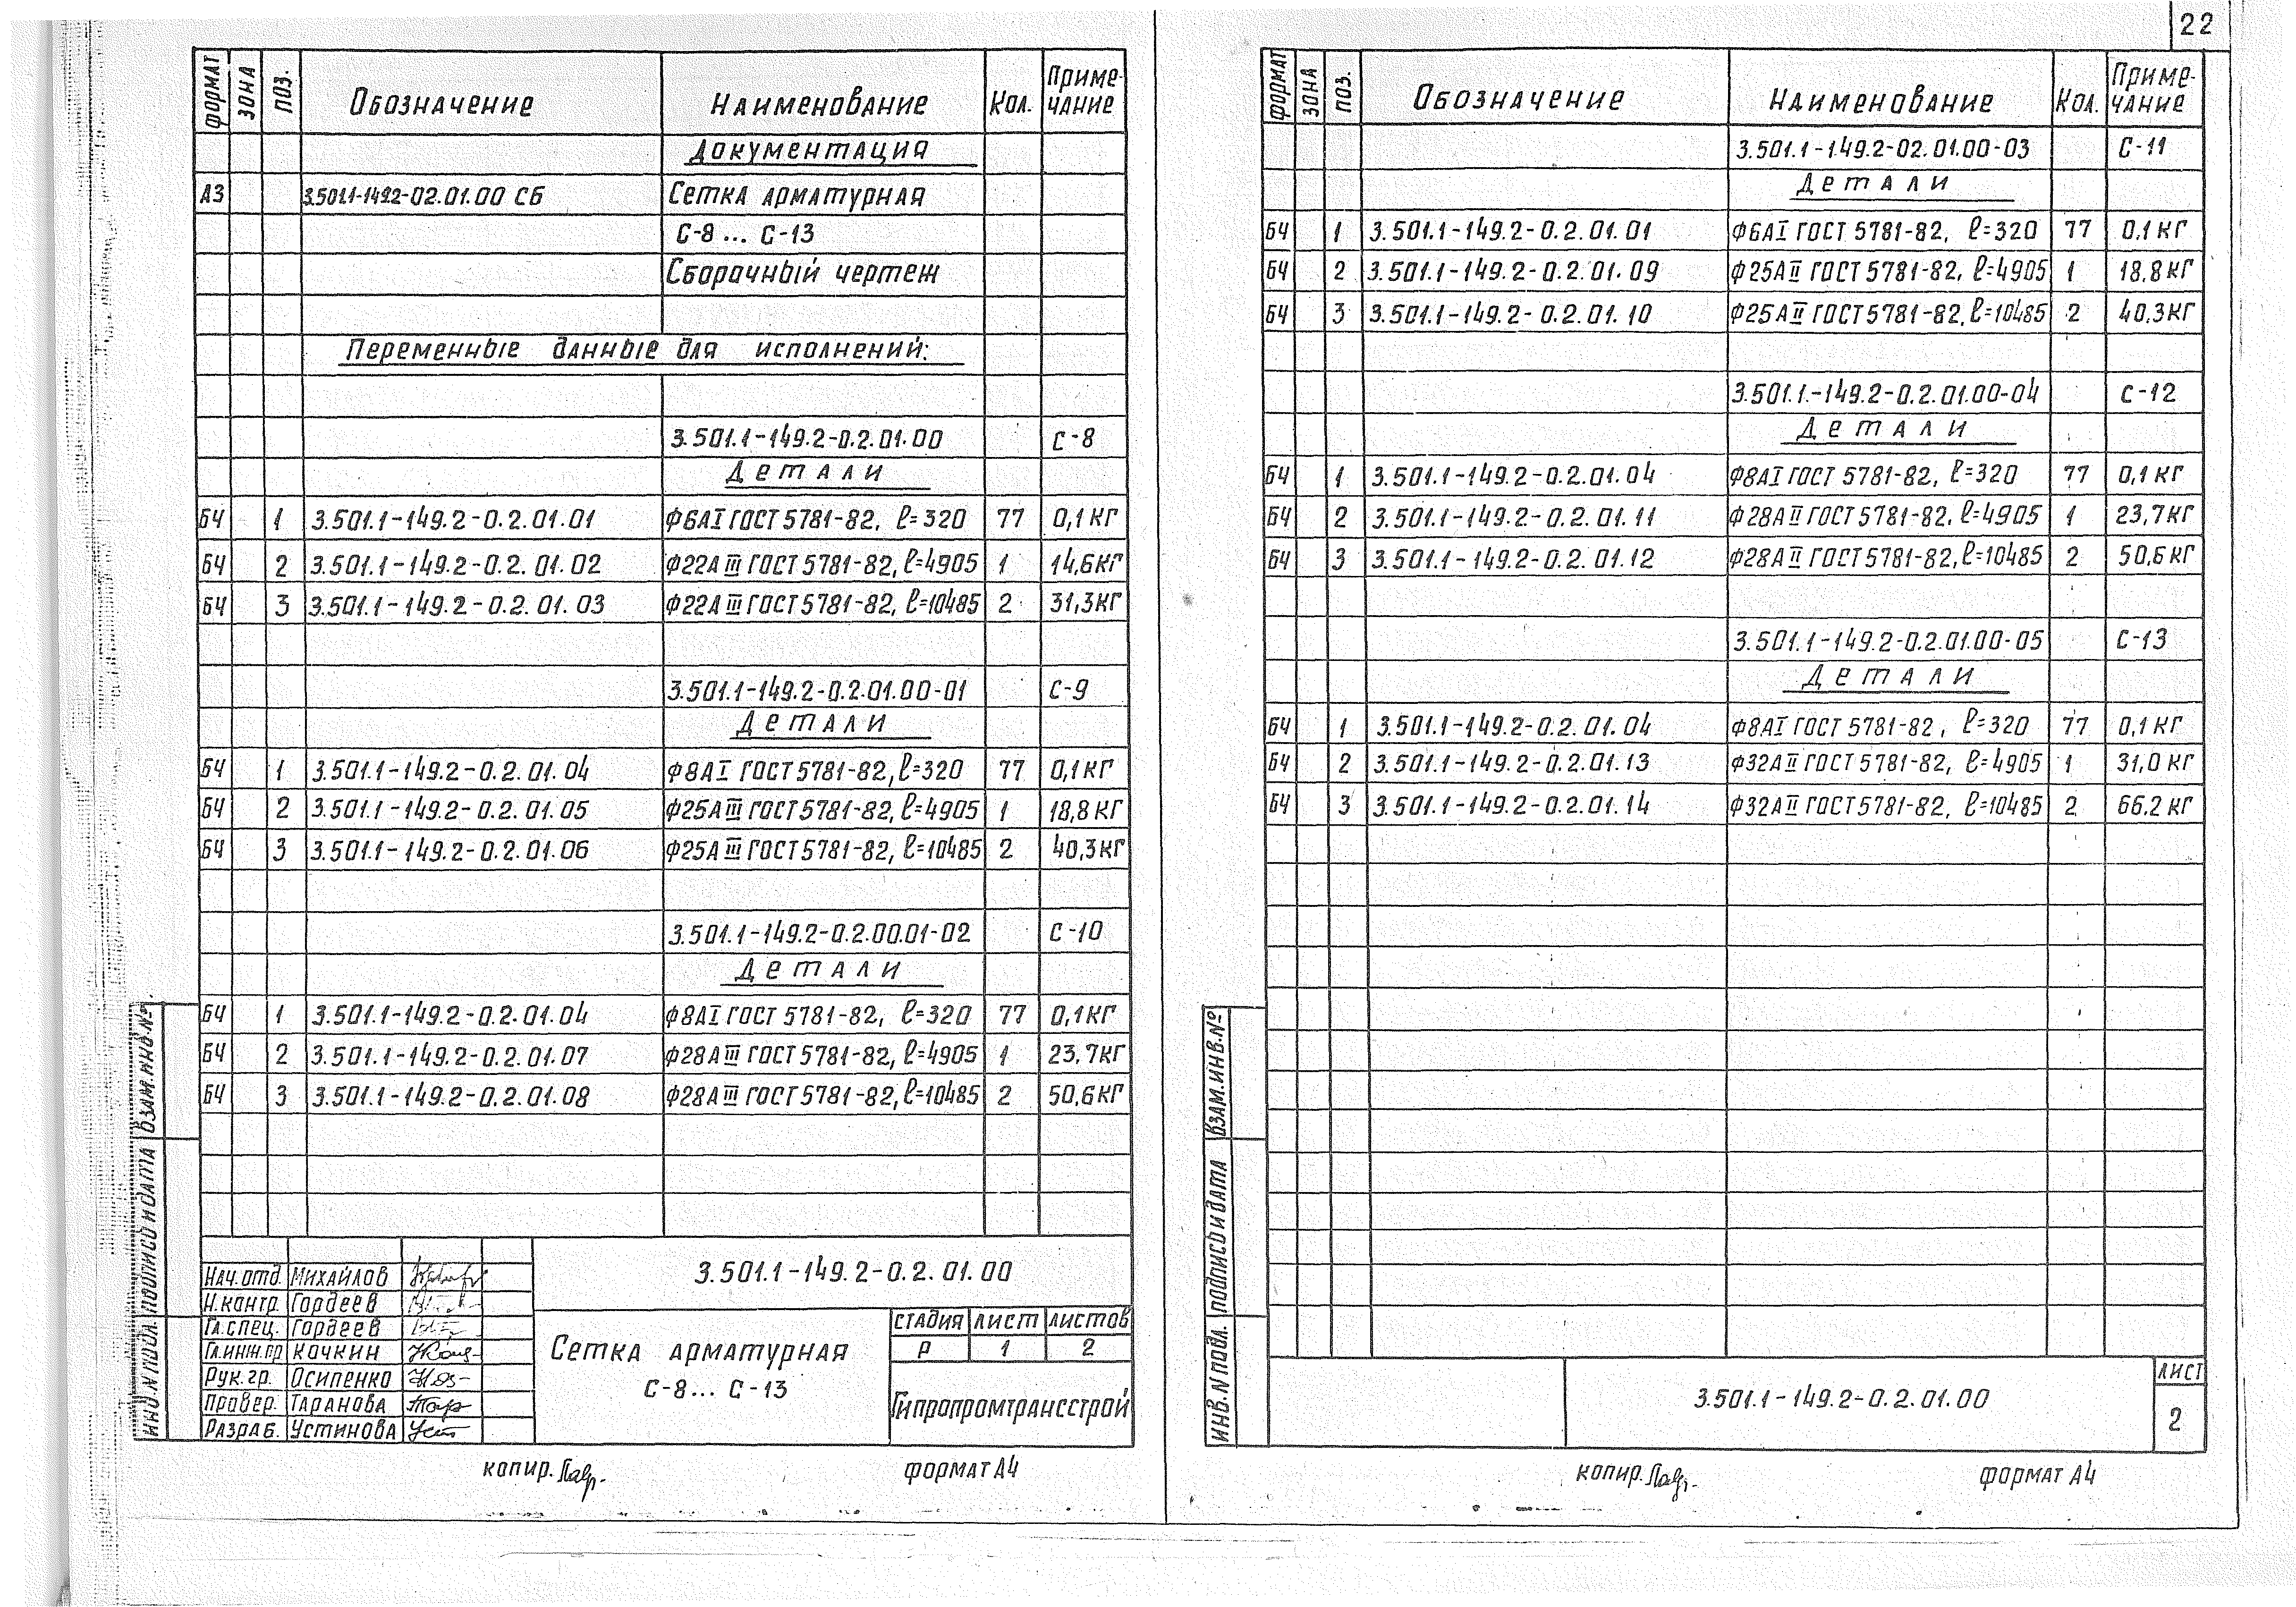 22
ФОРМАТ ЗОНА ПОЗ. Обозначение Наименование Кол. Приме-
чание
Документация
А3 3.501.1-149.2-02.01.00 СБ Сетка арматурная
С-8... С-13
Сборочный чертеж
Переменные данные для исполнений:
3.501.1-149.2-0.2.01.00 С-8
Детали
БЧ 1 3.501.1-149.2-0.2.01.01 Ф6АI ГОСТ 5781-82, ℓ=320 77 0,1 кг
БЧ 2 3.501.1-149.2-0.2.01.02 Ф22АIII ГОСТ 5781-82, ℓ=4905 1 14,6 кг
БЧ 3 3.501.1-149.2-0.2.01.03 Ф22АIII ГОСТ 5781-82, ℓ=10485 2 31,3 кг
3.501.1-149.2-0.2.01.00-01 С-9
Детали
БЧ 1 3.501.1-149.2-0.2.01.04 Ф8АI ГОСТ 5781-82, ℓ=320 77 0,1 кг
БЧ 2 3.501.1-149.2-0.2.01.05 Ф25АIII ГОСТ 5781-82, ℓ=4905 1 18,8 кг
БЧ 3 3.501.1-149.2-0.2.01.06 Ф25АIII ГОСТ 5781-82, ℓ=10485 2 40,3 кг
3.501.1-149.2-0.2.00.01-02 С-10
Детали
БЧ 1 3.501.1-149.2-0.2.01.04 Ф8АI ГОСТ 5781-82, ℓ=320 77 0,1 кг
БЧ 2 3.501.1-149.2-0.2.01.07 Ф28АIII ГОСТ 5781-82, ℓ=4905 1 23,7 кг
БЧ 3 3.501.1-149.2-0.2.01.08 Ф28АIII ГОСТ 5781-82, ℓ=10485 2 50,6 кг
ИНВ. N ПОДЛ. ПОДПИСЬ И ДАТА ВЗАМ. ИНВ. №
3.501.1-149.2-0.2.01.00
Нач. отд. Михайлов
Н. контр. Гордеев
Гл. спец. Гордеев
Гл. инж. пр Кочкин
Рук. гр. Осипенко
Провер. Таранова
Разраб. Устинова
Сетка арматурная
С-8... С-13
стадия лист листов
Р 1 2
Гипропромтрансстрой
копир.
формат А4
ФОРМАТ ЗОНА ПОЗ. Обозначение Наименование Кол. Приме-
чание
3.501.1-149.2-02.01.00-03 С-11
Детали
БЧ 1 3.501.1-149.2-0.2.01.01 Ф6АI ГОСТ 5781-82, ℓ=320 77 0,1 кг
БЧ 2 3.501.1-149.2-0.2.01.09 Ф25АII ГОСТ 5781-82, ℓ=4905 1 18,8 кг
БЧ 3 3.501.1-149.2-0.2.01.10 Ф25АII ГОСТ 5781-82, ℓ=10485 2 40,3 кг
3.501.1.-149.2-0.2.01.00-04 С-12
Детали
БЧ 1 3.501.1-149.2-0.2.01.04 Ф8АI ГОСТ 5781-82, ℓ=320 77 0,1 кг
БЧ 2 3.501.1-149.2-0.2.01.11 Ф28АII ГОСТ 5781-82, ℓ=4905 1 23,7 кг
БЧ 3 3.501.1-149.2-0.2.01.12 Ф28АII ГОСТ 5781-82, ℓ=10485 2 50,6 кг
3.501.1-149.2-0.2.01.00-05 С-13
Детали
БЧ 1 3.501.1-149.2-0.2.01.04 Ф8АI ГОСТ 5781-82, ℓ=320 77 0,1 кг
БЧ 2 3.501.1-149.2-0.2.01.13 Ф32АII ГОСТ 5781-82, ℓ=4905 1 31,0 кг
БЧ 3 3.501.1-149.2-0.2.01.14 Ф32АII ГОСТ 5781-82, ℓ=10485 2 66.2 кг
ИНВ. N ПОДЛ. ПОДПИСЬ И ДАТА ВЗАМ. ИНВ. №
3.501.1-149.2-0.2.01.00
лист
2
копир.
формат А4